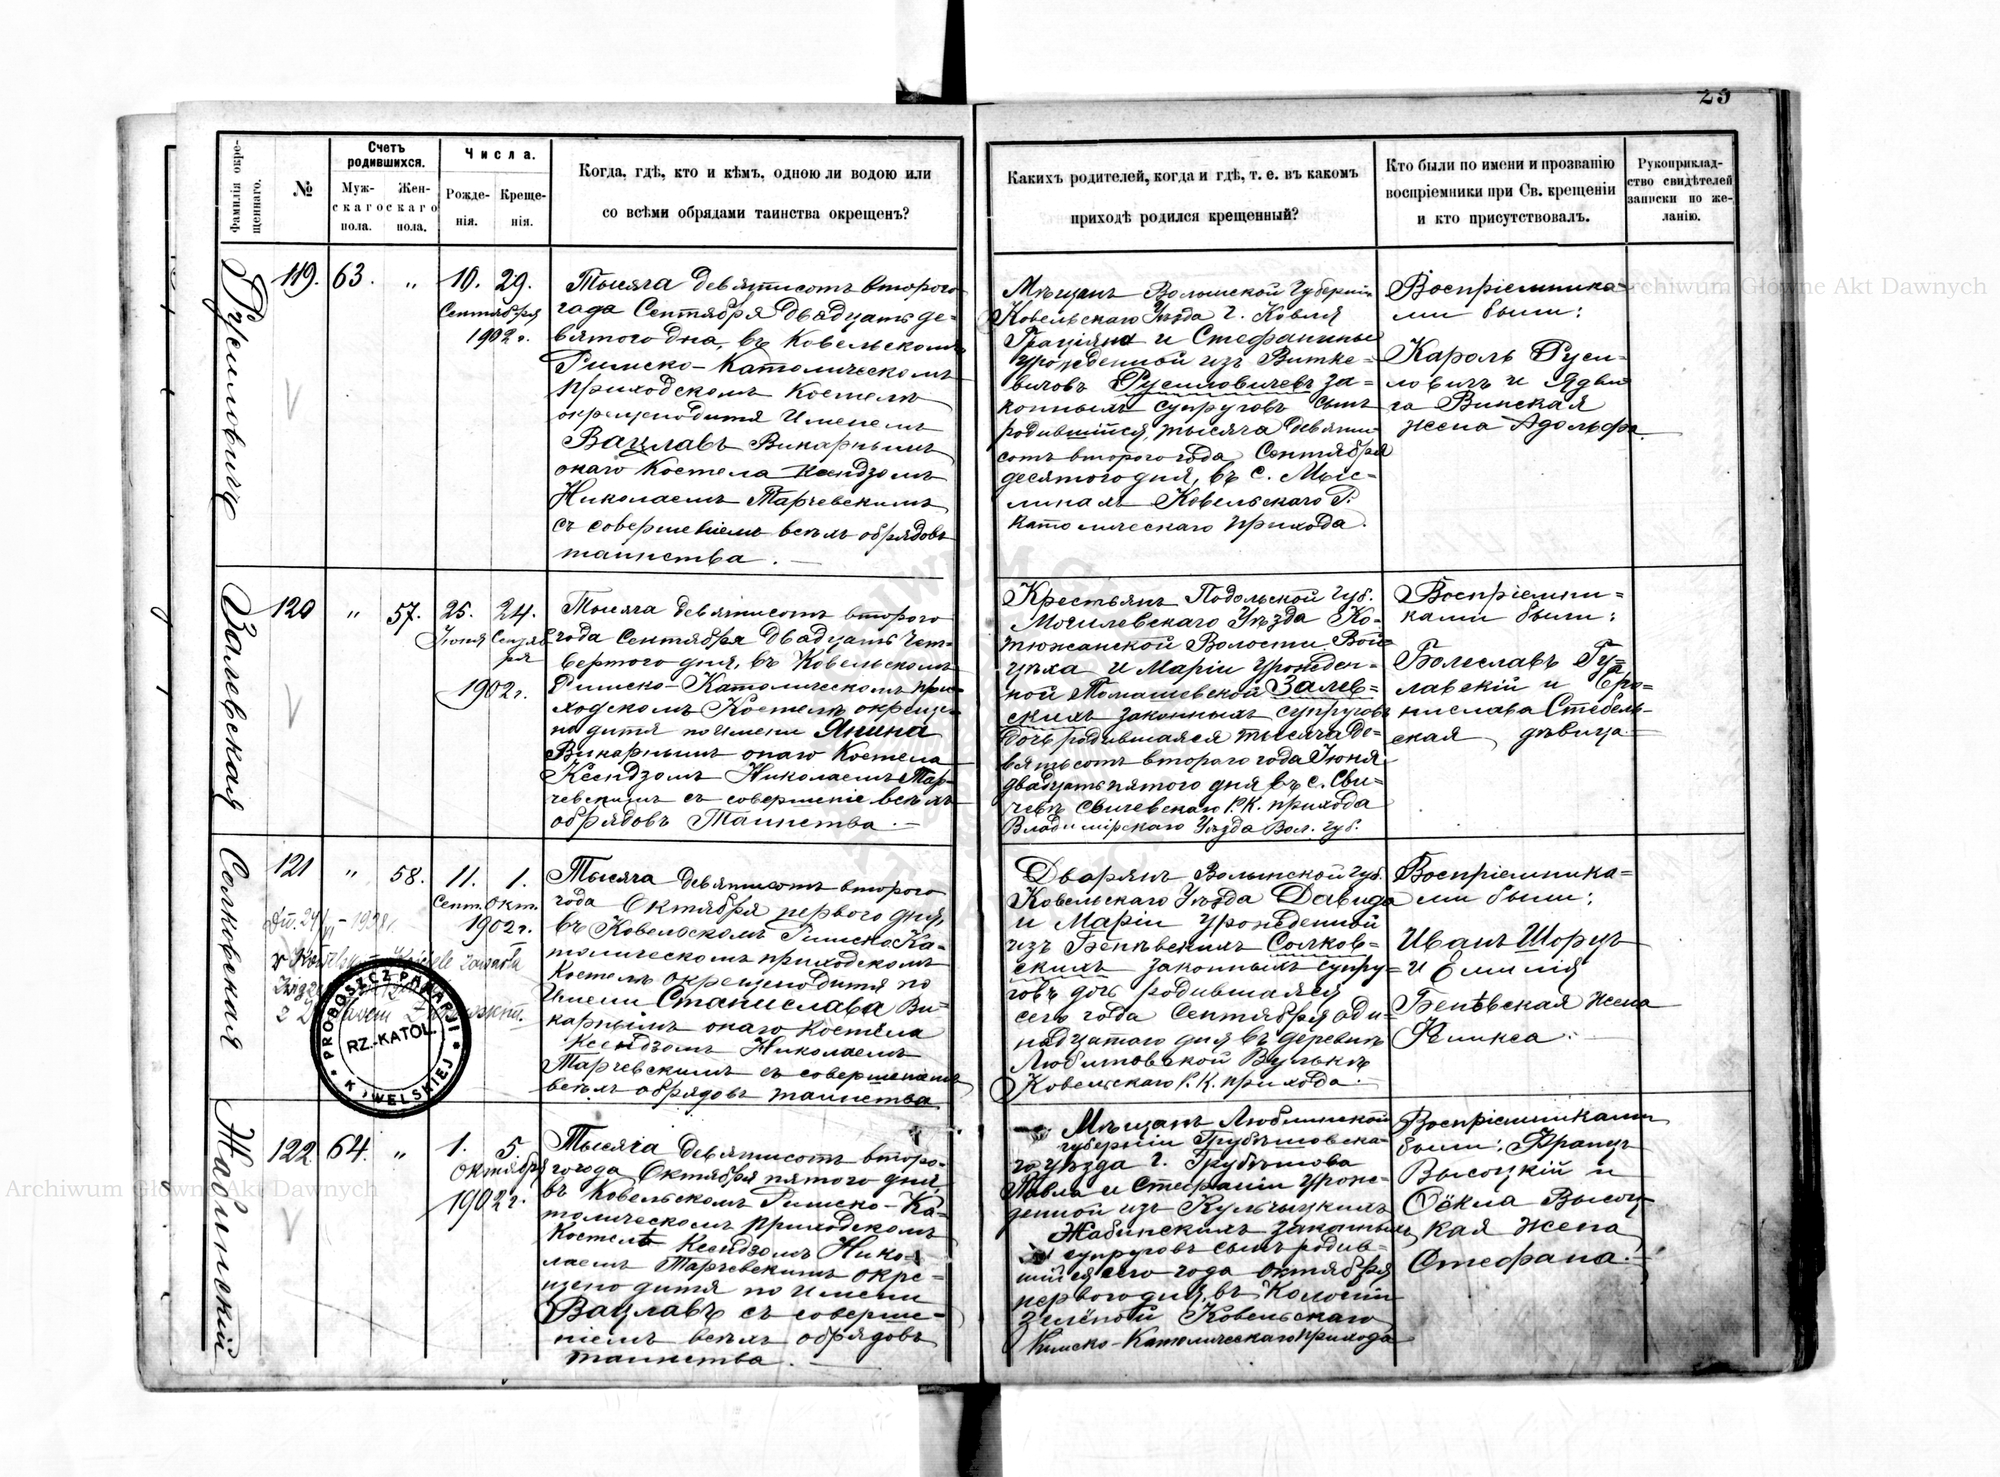 23
Фамилія окре-
щеннаго.
№
Счетъ
родившихся.
Муж-
скаго
пола.
Жен-
скаго
пола.
Числа.
Рожде-
нія.
Креще-
нія.
Когда, гдѣ, кто и кѣмъ, одною ли водою или
со всѣми обрядами таинства окрещенъ?
Какихъ родителей, когда и гдѣ, т. е. въ какомъ
приходѣ родился крещенный?
Кто были по имени и прозванію
воспріемники при Св. крещеніи
и кто присутствовалъ.
Рукоприклад-
ство свидѣтелей
записки по же-
ланію.
Русиловичъ
119.
63.
"
10. 29.
Сентября
1902 г.
Тысяча девятисотъ второго
года Сентября двадцать де-
вятого дня, въ Ковельскомъ
Римско-Католическомъ
приходскомъ Костелѣ
окрещено дитя Именемъ
Вацлавъ Викарнымъ
онаго Костела Ксендзомъ
Николаемъ Тарчевскимъ
съ совершеніемъ всѣхъ обрядовъ
таинства.
Мѣщанъ Волынской Губерніи
Ковельскаго Уѣзда г. Ковля
Граціяна и Стефанины
урожденной изъ Витке-
вичовъ Русиловичевъ за-
конныхъ супруговъ сынъ
родившійся, тысяча девяти
сотъ второго года, Сентября
десятого дня, въ с. Мыс-
линахъ Ковельскаго Р.
католическаго прихода.
Воспріемника-
ми были:
Кароль Руси-
ловичъ и Ядви
га Винская
жена Адольфа
Залевская
120
"
57.
25. 24.
Іюня Сентяб
ря
1902 г.
Тысяча девятисотъ второго
года Сентября двадцать чет-
вертого дня, въ Ковельскомъ
Римско-Католическомъ при-
ходскомъ Костелѣ окреще-
но дитя по имени Янина
Викарнымъ онаго Костела
Ксендзомъ Николаемъ Тар-
чевскимъ съ совершеніе всѣхъ
обрядовъ Таинства.
Крестьянъ Подольской губ.
Могилевскаго Уѣзда Ко-
тюжанской Волости Вой
цѣха и Маріи урожден-
ной Томашевской Залев=
скихъ законныхъ супруговъ
дочь родившаяся тысяча де-
вятьсотъ второго года Іюня
двадцать пятого дня въ с. Сви-
чевѣ Свичевскаго Р.К. прихода
Владимірскаго Уѣзда Вол. губ.
Воспріемни=
ками были:
Болеславъ Гу-
лавскій и Бро=
нислава Стебель-
ская дѣвица
Солковская
121
"
58.
11. 1.
Сент. Окт.
1902 г.
Тысяча девятисотъ второго
года Октября первого дня,
въ Ковельскомъ Римско Ка-
толическомъ приходскомъ
Костелѣ окрещено дитя по
Имени Станислава Ви-
карнымъ онаго Костела
Ксендзомъ Николаемъ
Тарчевскимъ съ совершеніемъ
всѣхъ обрядовъ таинства
Дворянъ Волынской губ.
Ковельскаго Уѣзда Давида
и Маріи урожденной
изъ Бенѣвскихъ Солков-
скихъ законныхъ супру-
говъ дочь родившаяся
сего года Сентября оди-
надцатого дня въ деревнѣ
Любитовской Вулькѣ
Ковельскаго Р.К. прихода.
Воспріемника=
ми были:
Иванъ Шорцъ
и Емилія
Бенѣвская жена
Феликса.
PROBOSZCZ PARAFJI
RZ.-KATOL.
KOWELSKIEJ
Жабинскій
122.
64.
"
1. 5.
Октября
1902 г.
Тысяча девятисотъ второ-
го года Октября пятого дня
въ Ковельскомъ Римско-Ка-
толическомъ приходскомъ
Костелѣ Ксендзомъ Нико-
лаемъ Тарчевскимъ окре-
щено дитя по имени
Вацлавъ съ соверше-
ніемъ всѣхъ обрядовъ
таинства.
Мѣщанъ Люблинской
губерніи Грубѣшовска-
го уѣзда г. Грубѣшова
Павла и Стефаніи урож-
денной изъ Кульчицкихъ
Жабинскихъ законныхъ
супруговъ сынъ родив-
шійся сего года октября
первого дня, въ Колоніи
Зелёной Ковельскаго
Римско-Католическаго прихода
Воспріемниками
были: Францъ
Высоцкій и
Ѳёкла Высоц-
кая жена
Стефана.
Archiwum Główne Akt Dawnych
Archiwum Główne Akt Dawnych